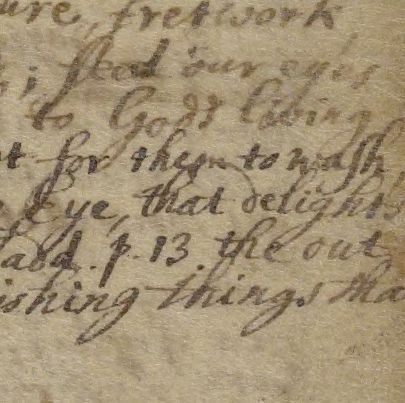 ure, fretwork
; feed our eyes
to Gods living
t for them to wash
e Eye, that delights
add. p. 13 the out
ishing things tha